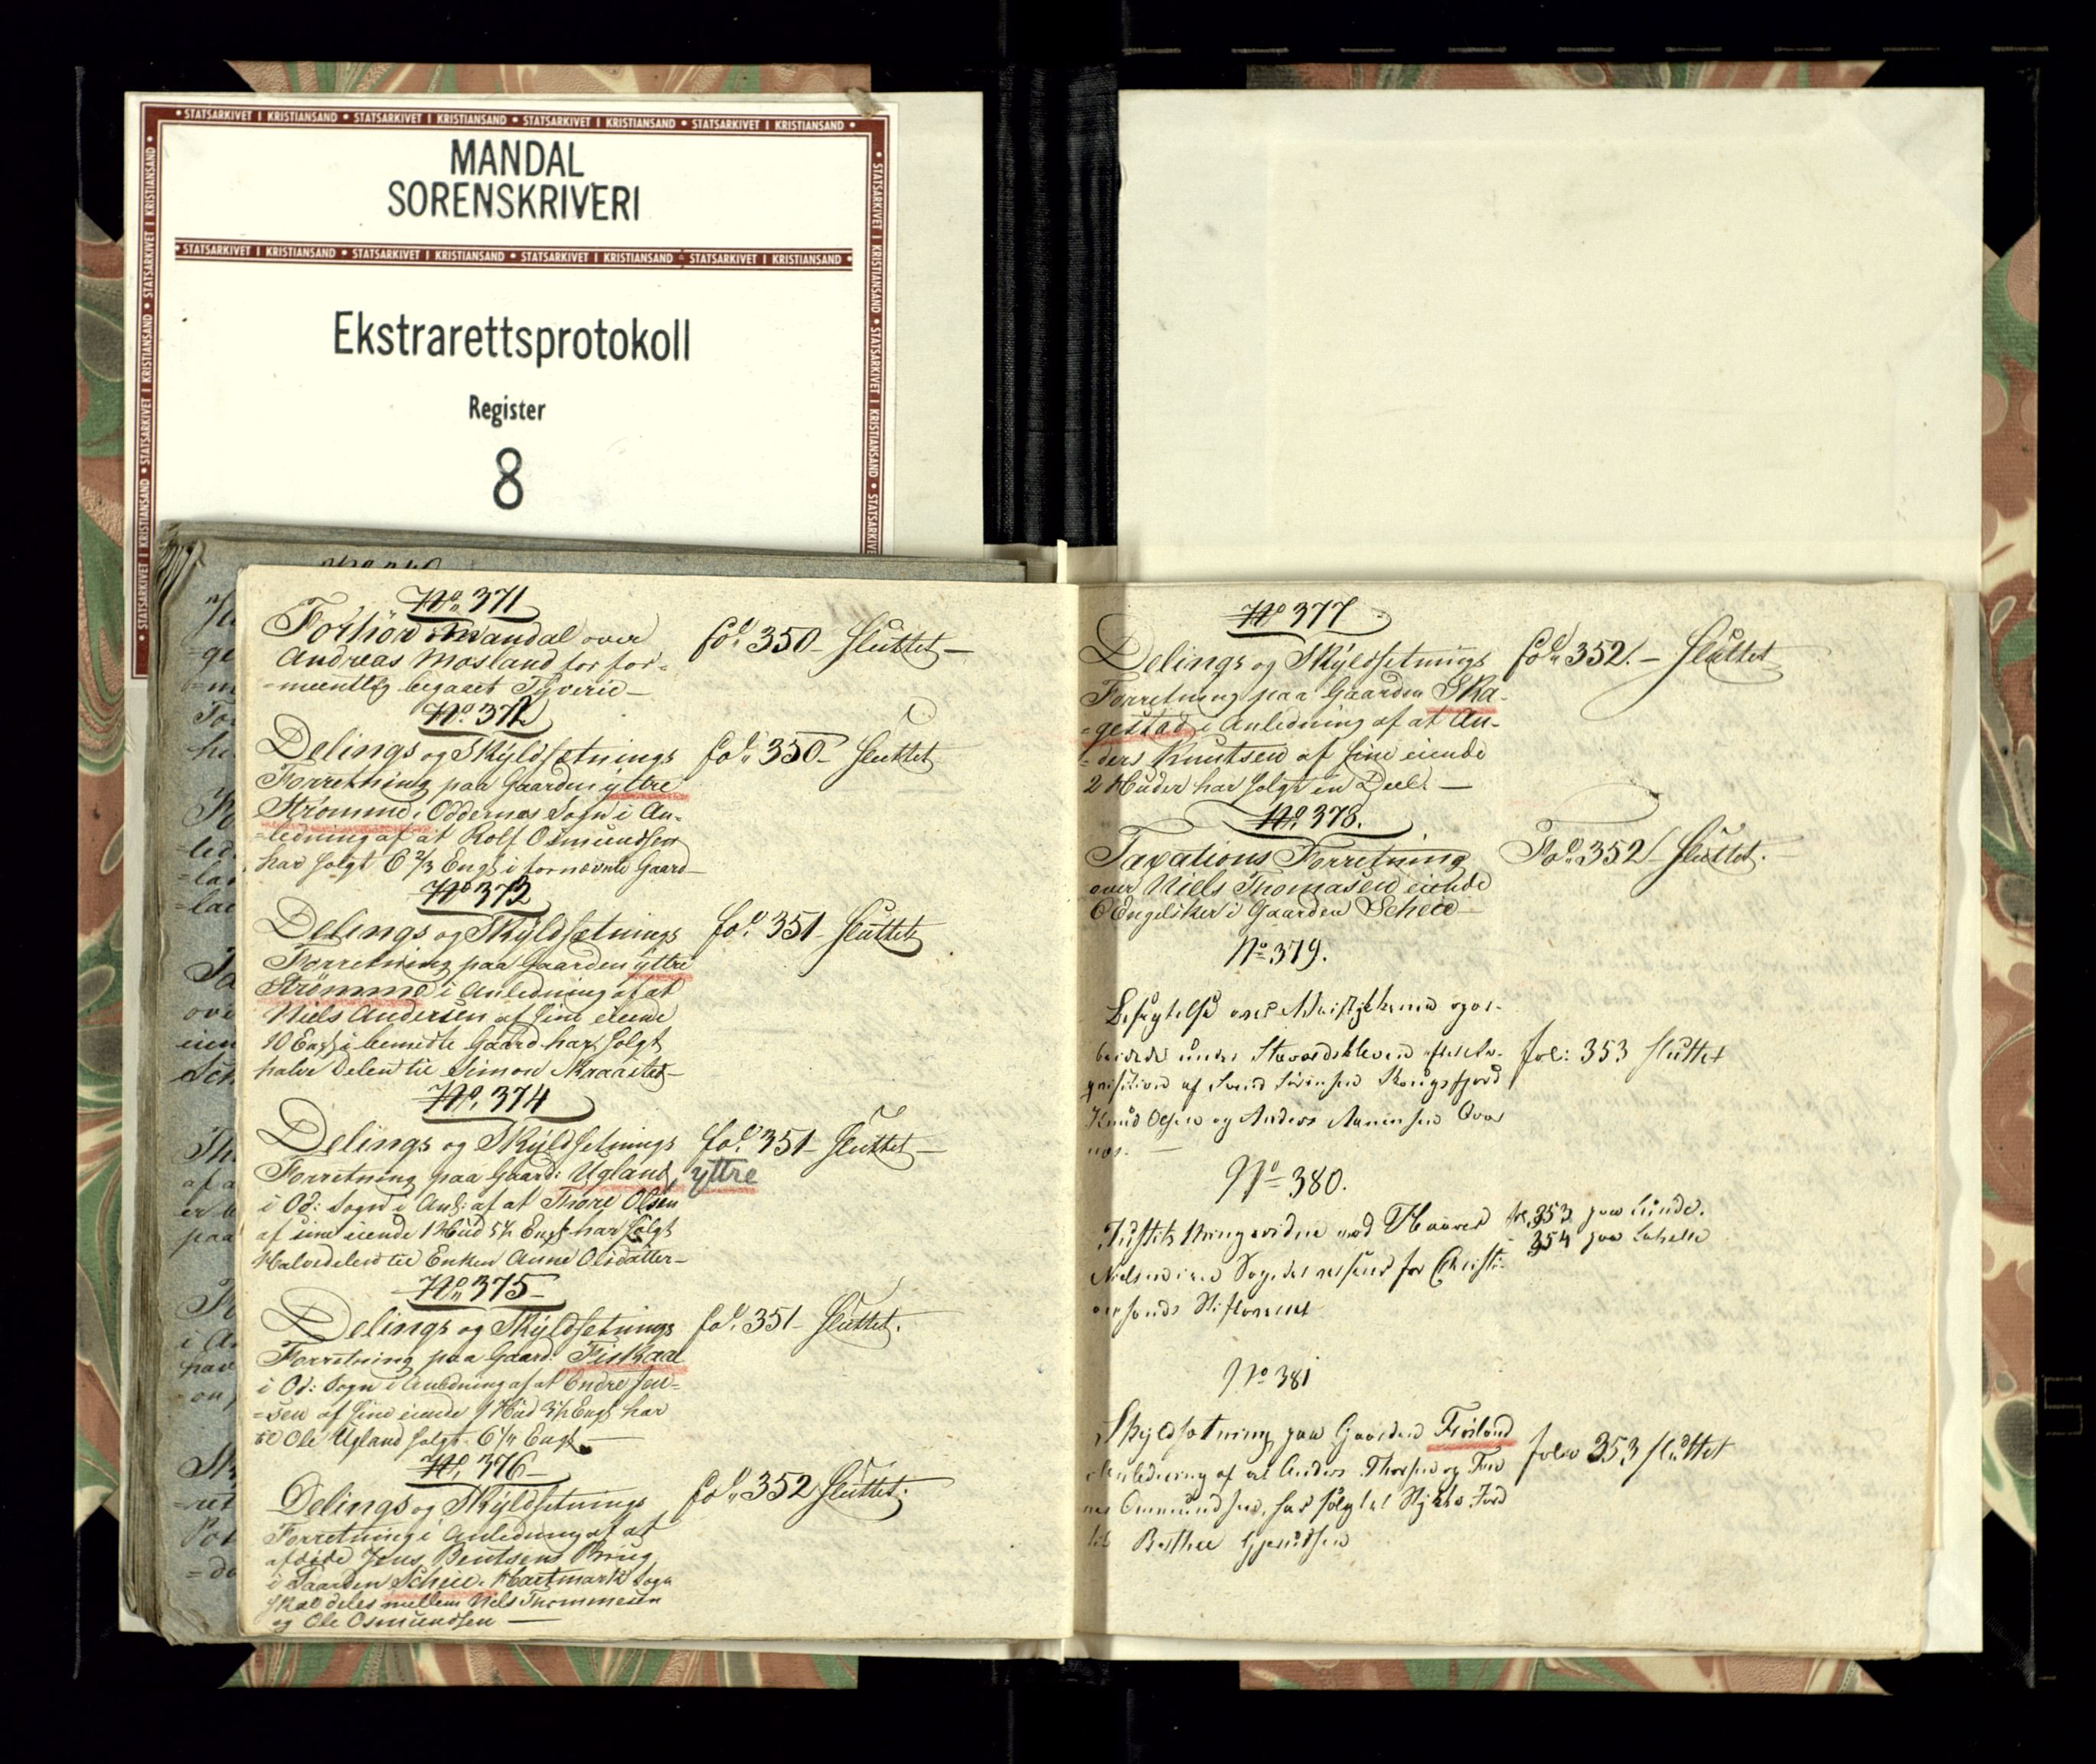 MANDAL
SORENSKRIVERI
STATSARKIVET I KRISTIANSAND • STATSARKIVET I KRISTIANSAND • STATSARKIVET I KRISTIANSAND • STATSARKIVET I KRISTIANSAND
Ekstrarettsprotokoll
Register
8
No. 371
Forhör i Mandal over
Andreas Mosland for for-
=meentlig begaaet Tÿverie —
fol. 350 - sluttet —
No. 372
Delings og Skÿldsetnings
Forretning paa Gaarden ÿttre
Strömme i Oddernes Sogn i An-
=ledning af at Rolf Osmundsen
har solgt 6 2/3 Eng: i fornævnte Gaard —
fol. 350 - sluttet
No. 373
Delings og Skÿldsetnings
Forretning paa Gaarden ÿttre
Strömme i Anledning af at
Niels Andersen af sine eiende
10 Eng: i bemeldte Gaard har solgt
halve Delen til Simon
fol. 351 - sluttet
No. 374
Delings og Skÿldsetnings
Forretning paa Gaard: Ugland, yttre
i Od: Sogn i Anl: af at Thore Olsen
af sine eiende 1 Hud Eng: har solgt
Halvedelen til Enken Anne Olsdatter —
fol. 351 - sluttet —
No. 375 —
Delings og Skÿldsetnings
Forretning paa Gaard: Fiskaae
i Od: Sogn i Anledning af at Endre Jen-
=sen af sine eiende 1 Hud Eng: har
Ole Ugland solgt Eng: —
fol. 351 - sluttet.
No. 376 —
Delings og Skÿldsetnings
Forretning i Anledning af at
afdöde Jens Bentsens Brug
i Gaarden Scheie i Hartmark Sogn
skal deles mellem Niels Thommesen
og Ole Osmundsen —
fol. 352 sluttet.
No 377
Delings og Skÿldsetnings
Forretning paa Gaarden Ska-
=gestad i Anledning af at An-
=ders Knutsen af sine eiende
2 Huder har solgt en Deel. —
fol. 352. - sluttet
No. 378.
Taxations Forretning
over Niels Thomasen eiende
6 Engelsker i Gaarden Scheie —
Fol. 352 - sluttet.
No 379.
Besigtelse over
under efter
af Svend Sörensen
Knud Olsen og Anders Aanensen
fol: 353 sluttet
No 380.
Justits
Nielsen for Christi-
ansands Stiftamt
fol. 353 paa Lunde.
- 354 paa
No 381
Skyldsætning paa Gaarden Frösland
i Anledning af at Anders Thorsen og
Ommundsen, har solgt et Stykke Jord
til Berthe
folio 353 sluttet